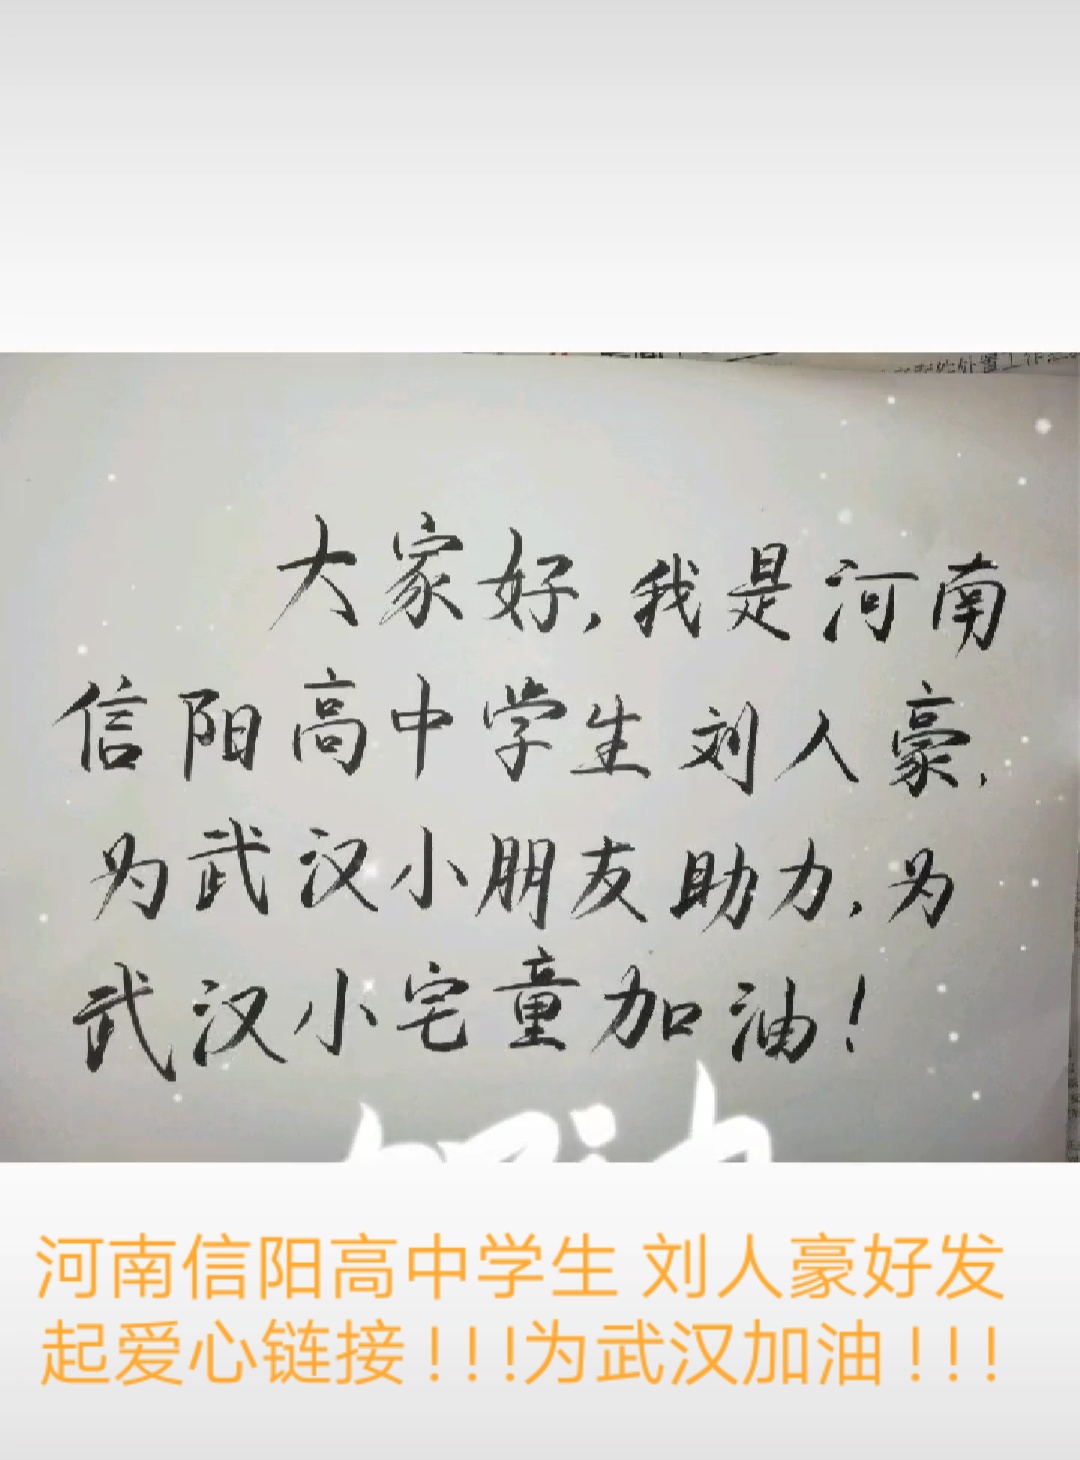 大家好,我是河南
信阳高中学生刘人豪,
为武汉小朋友助力,为
武汉小宅童加油!
河南信阳高中学生 刘人豪好发
起爱心链接!!!为武汉加油!!!